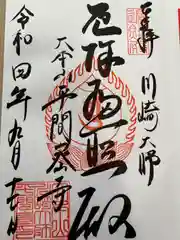 奉拝 川崎大師
厄除遍照殿
大本山平間寺
令和四年九月日